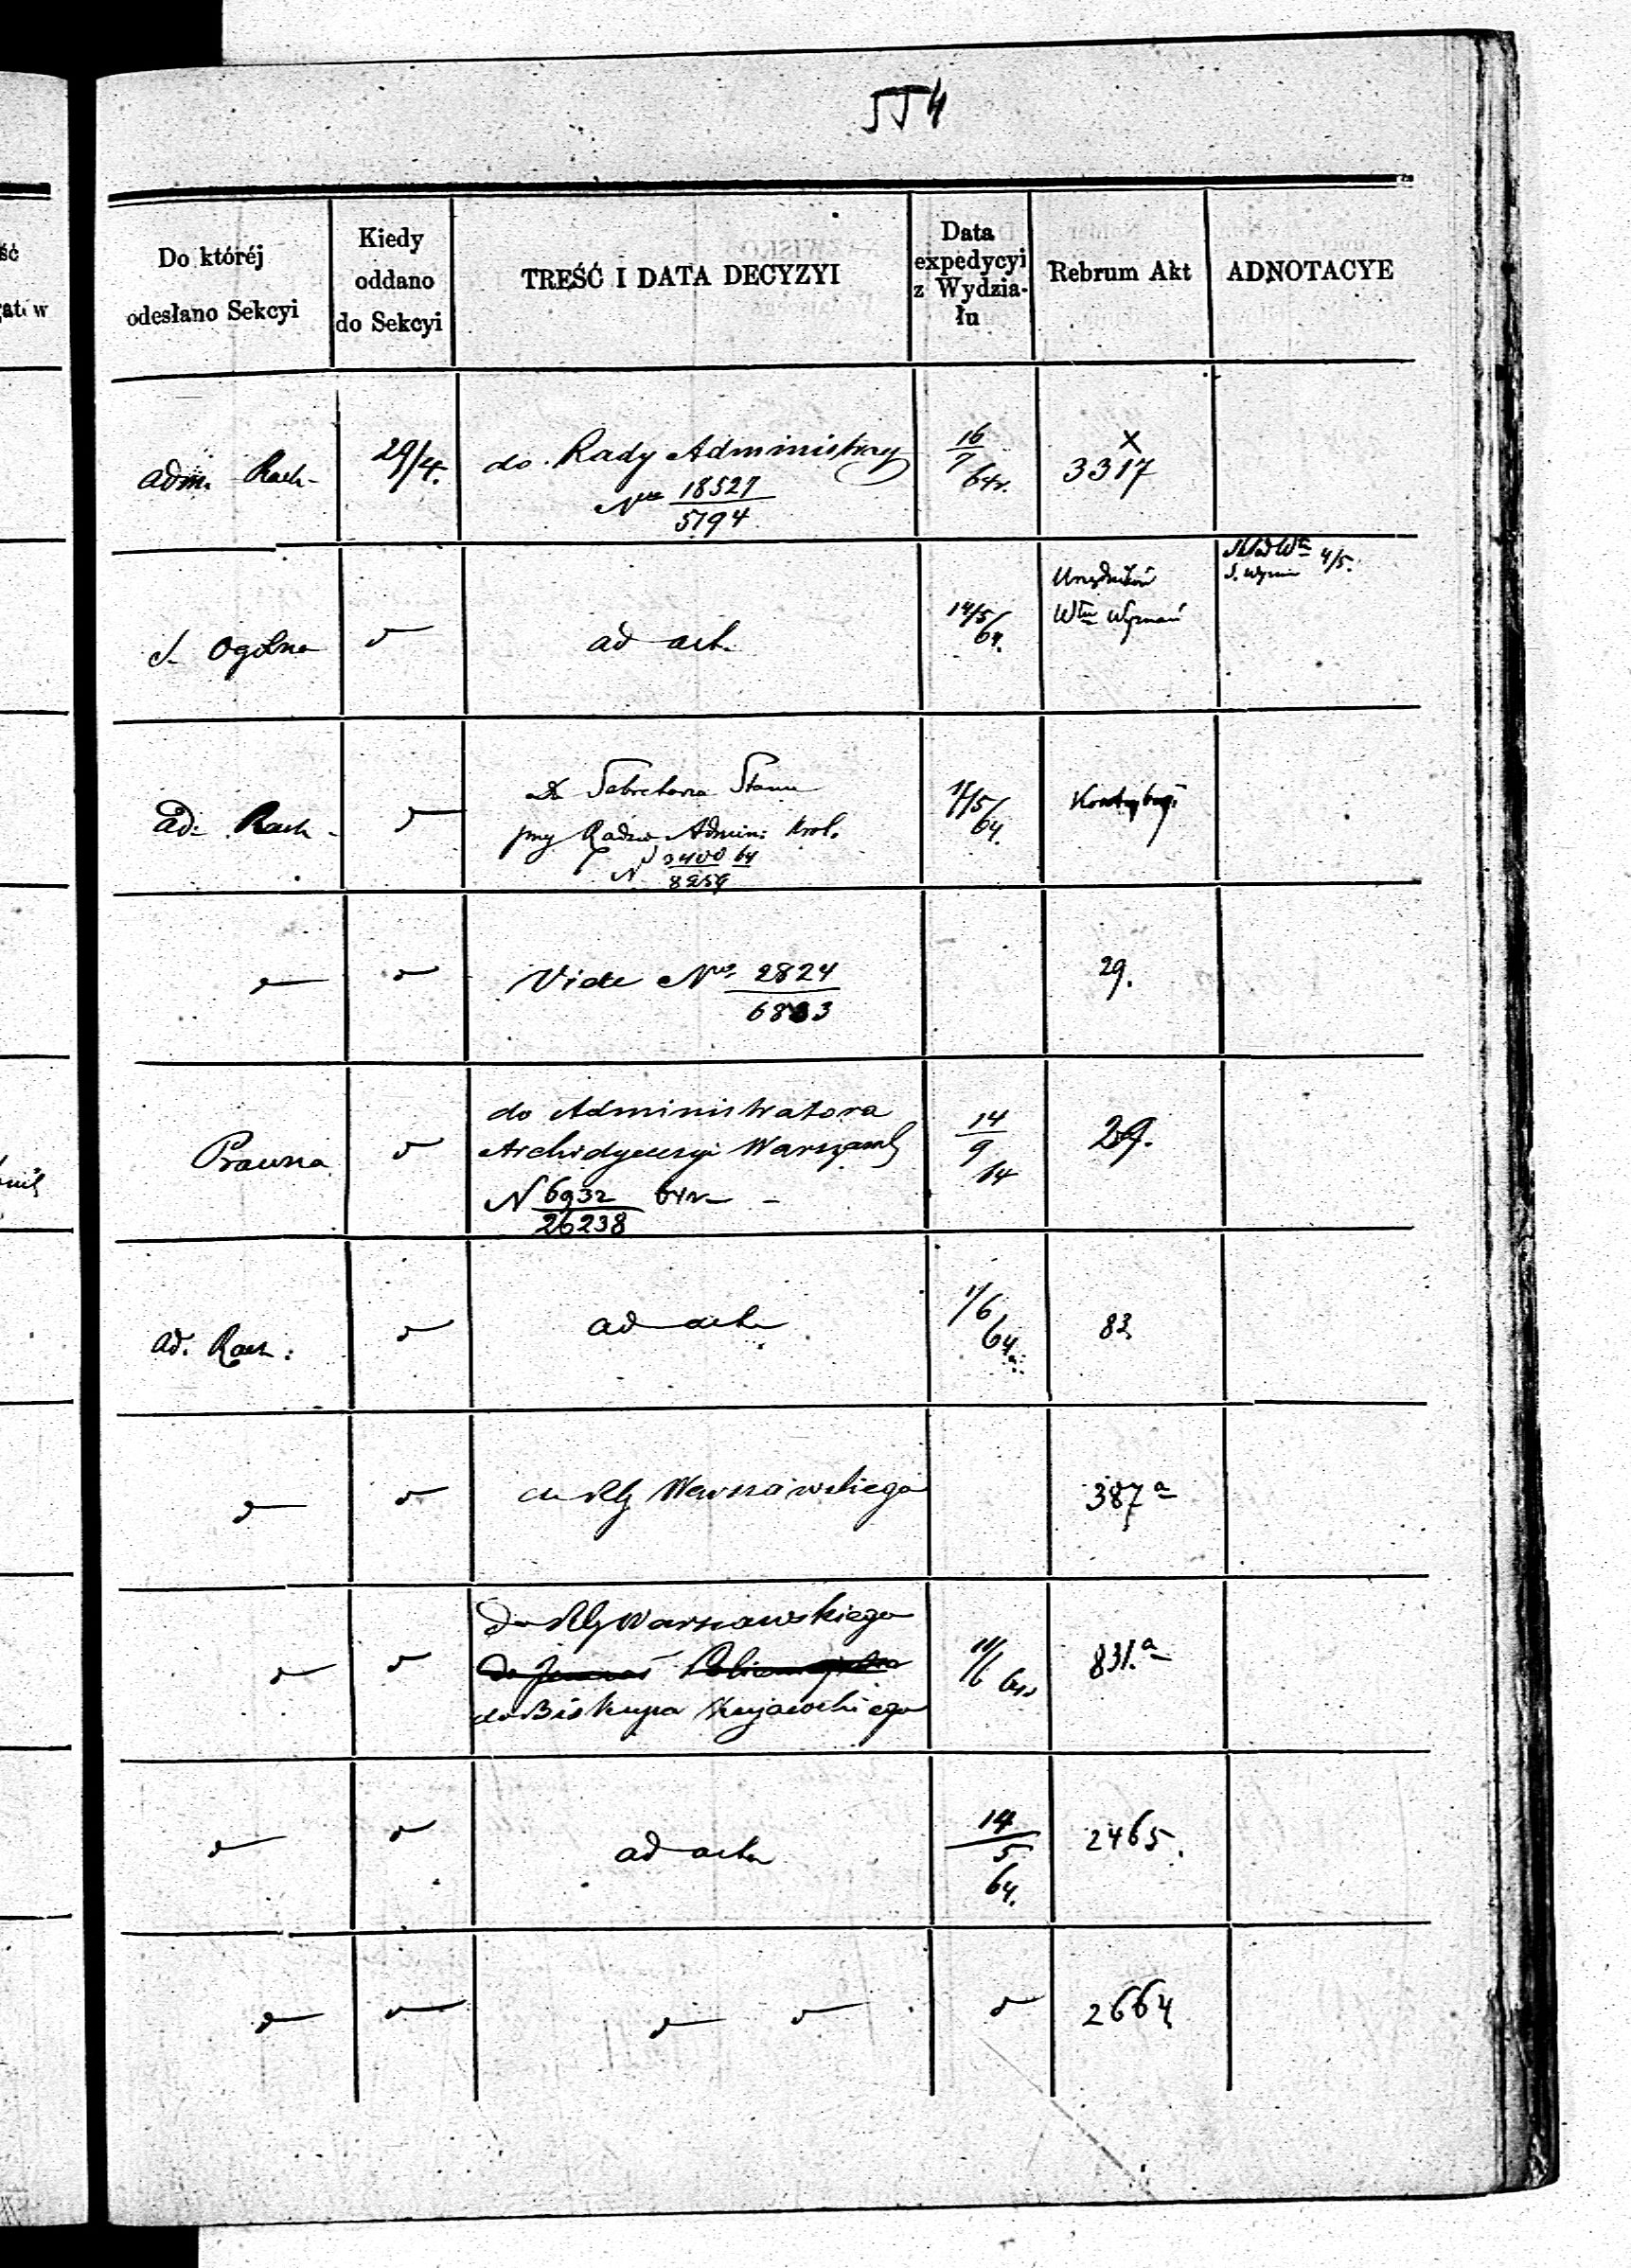 554
Do któréj
odesłano Sekcyi
Kiedy
oddano
do Sekcyi
TREŚĆ I DATA DECYZYI
Data
expedycyi
z Wydzia-
łu
Rebrum Akt
ADNOTACYE
adm. Rach-
29/4.
do Rady Administracy
Nro 18527
5794
16
7
64r.
x
3317
S. Ogólna
ad act.
14/5
64.
Urzędników
Włu Wyznań
4/5.
ad. Rach-
Do Sekretarza Stanu
przy Radzie Admin: Król.
N 3400 64
8959
17/5
64.
Vide Nro 2824
6883
29.
Prawna
do Administratora
Archidyecezyi Warszawsk
N 6932 64r
26238
14
9
64
29.
ad. Rach:
ad acta
1/6
64.
83
do RG Warszawskiego
387a
do RG Warszawskiego
do Biskupa Kujawskiego
11/6 64
831.a
ad acta
14
5
64.
2465.
2664